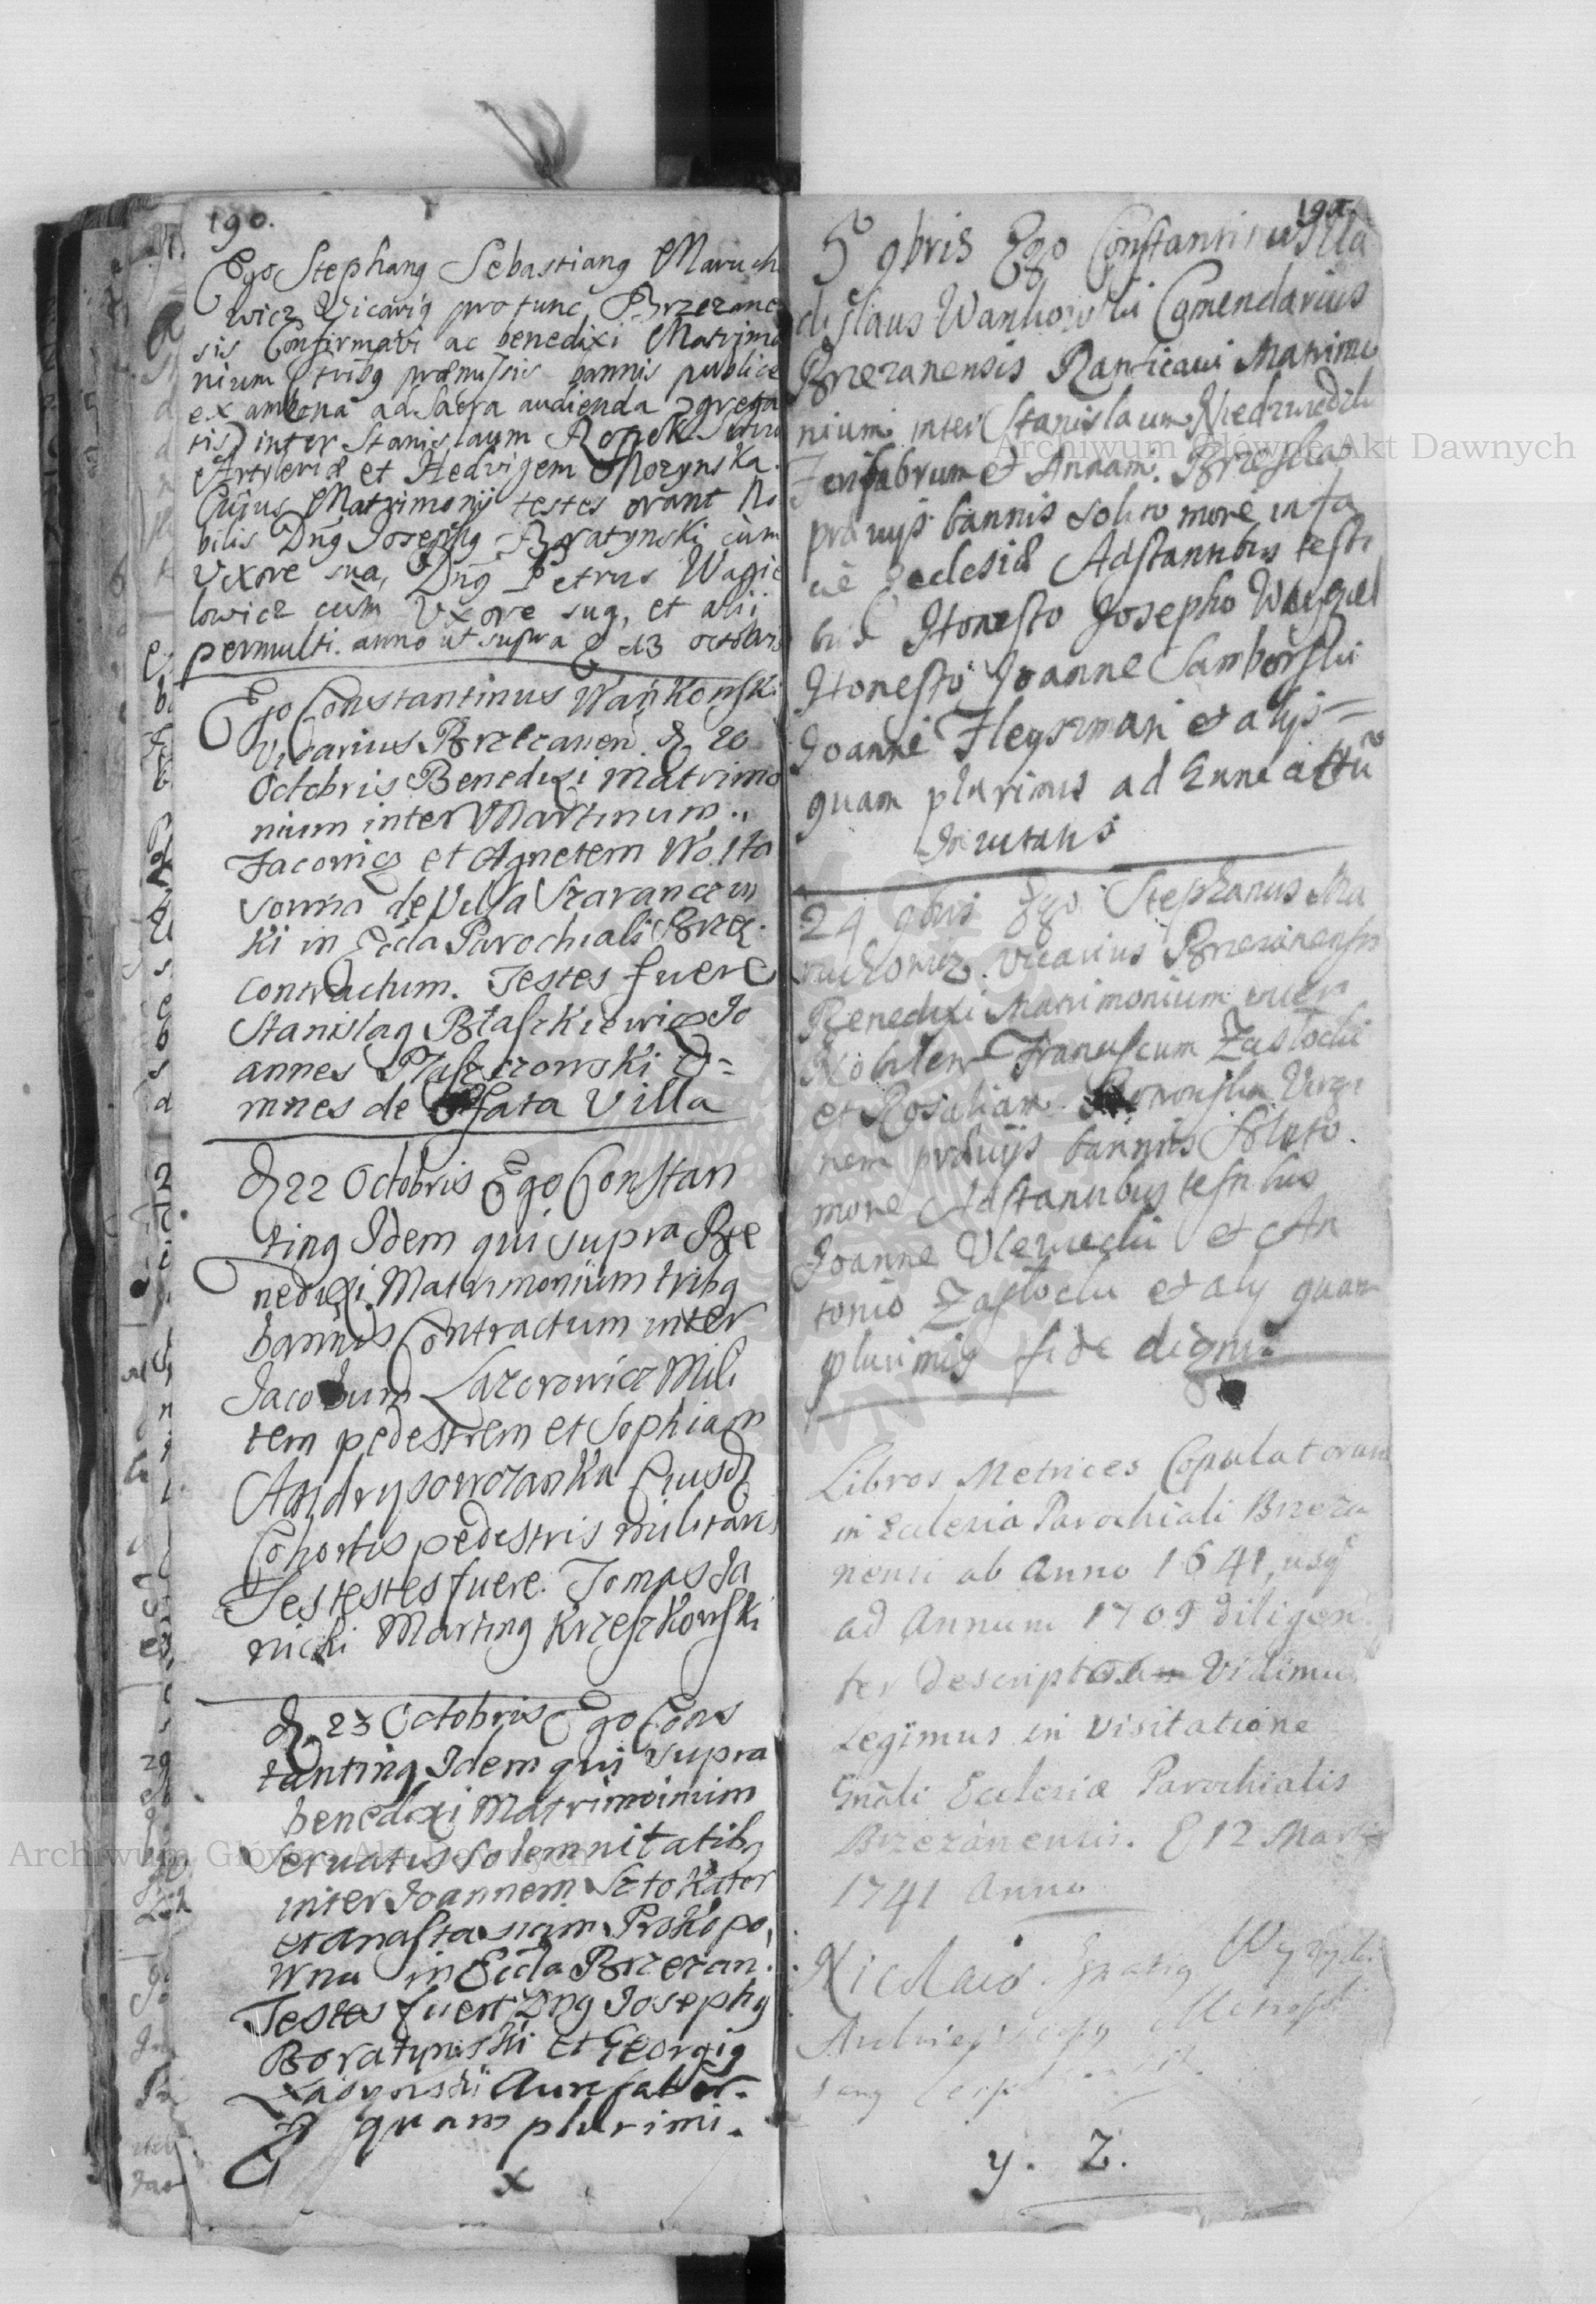 190.
Ego Stephang Sebastiang Maruch
wicz Vicarig pro tunc Brzezanē
sis Confirmavi ac benedixi Matrimo
nium (tribg præmissis bannis publice
ex ambona ad Sacra audienda ꝯgrega
tis) inter Stanislaum Ronek
Artyleriæ et Hedvigem Mozynska.
Cujus Matrimonij testes erant No
bilis Dng Josephg Boratynski cum
Vxore sua, Dng Petrus Wagie
lowicz cum Vxore sua, et alii
permulti. anno ut supra d 13 octobris
Ego Constantinus Wańkowski
Vicarius Brzezanen. d. 20
Octobris Benedixi matrimo
nium inter Martinum
Jacowicz et Agnetem Woÿto
vonna de Villa Szaranczu
ki in Eccla Parochiali Brzez.
contractum. Testes fuere
Stanislag Błaszkiewicz Jo
annes Płaszczowski O=
mnes de Pfata Villa
d 22 Octobris Ego Constan
ting Idem qui supra Be
nedixi Matrimoniium tribg
bannis Contractum inter
Jacobum Lazorowicz Mili
tem pedestrem et Sophiam
Andrysowozanka Eiusd
Cohortis pedestris militaris
Testestes fuere. Tomas Ja
nicki Marting Krzeszkowski
d. 23 Octobris Ego Cons
tanting Idem qui supra
benedixi Matrimoinium
servatis solemnitatibg
inter Joannem Sztokater
et anastasiam Prokopo,
wna in Eccla Brzezan.
Testes fuert Dng Josephg
Boratynski et Georgig
Lasynski Aurefaber.
Et quam plurimi.
x
191.
5 9bris Ego Constantinus Wla
dislaus Wankowski Comendarius
Brzezanensis Ratificavi Matrimo
nium inter Stanislaum Niedzwedzki
Ferifabrum et Annam Brzeska
prævijs bannis solito more in fa
cie Ecclesiæ Adstantibus testi
bus Honesto Josepho Waygiel
Honesto Joanne Samborski
Joanne Fleyszman et alijs=
quam plurimis ad hunc actū
Invitatis
24 9bris Ego Stephanus Ma
ruchowicz Vicarius Brzezanensis
Benedixi Matrimonium inter
Nobilem Franciscum Zastocki
et Rosaliam Virgi
nem prævijs bannis solito
more Adstantibus testibus
Joanne Ulewecki et An
tonio Zastocki et alij quam
plurimis fide dignis
Libros Metrices Copulatorum
in Eclesia Parochiali Brzeza
nensi ab Anno 1641, usq
ad Annum 1709 diligen
ter descriptos Vidimus
Legimus in Visitatione
Gnāli Eclesiæ Parochialis
Brzezanensis. d 12 Martii
1741 Anno
Nicolaus Ignatig Wyzycki
Archiepiscopg Metropoli
tang
y. Z.
Archiwum Główne Akt Dawnych
Archiwum Główne Akt Dawnych